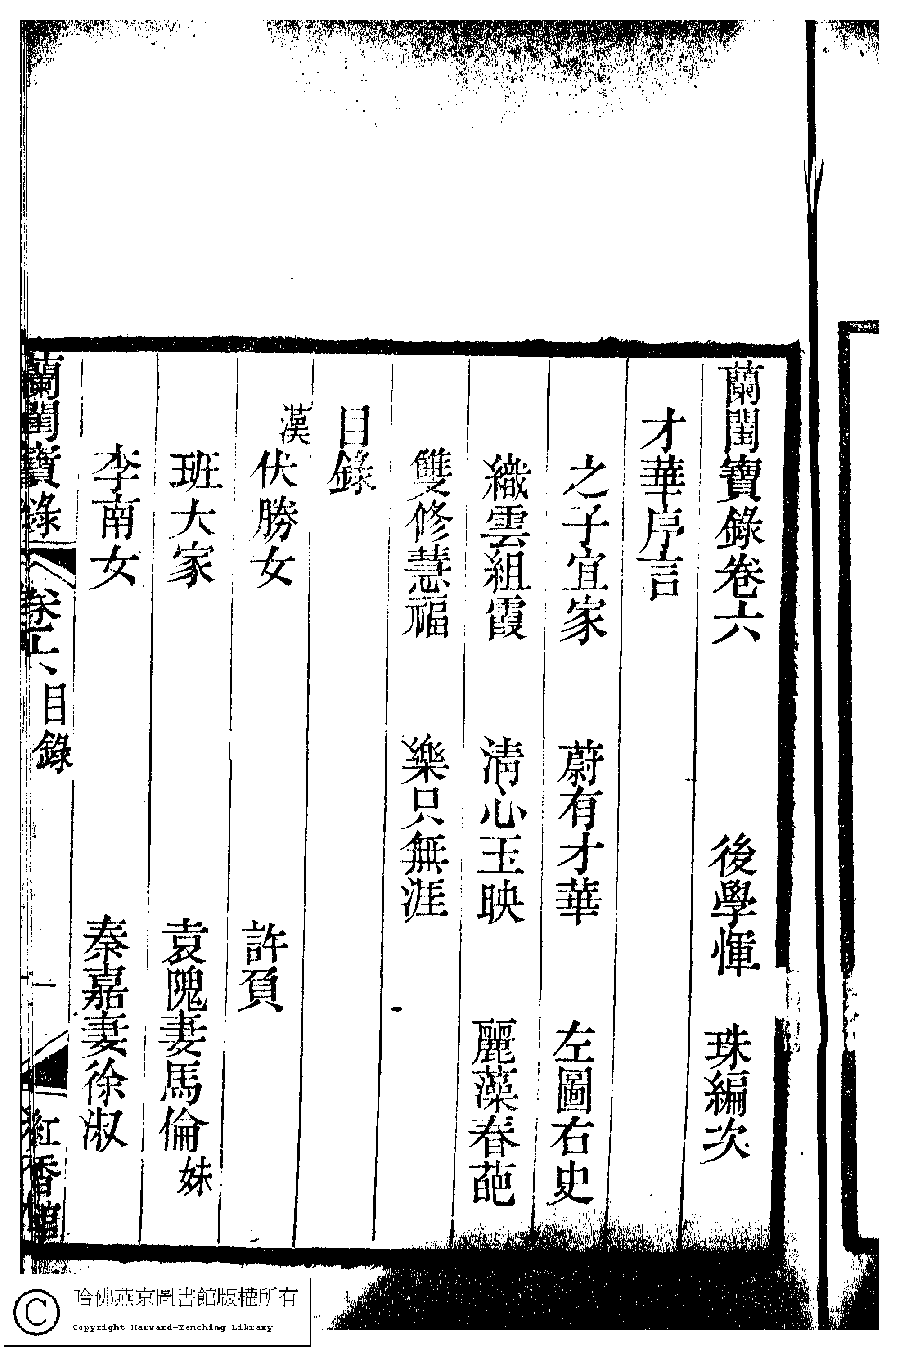 蘭閨寶錄卷六
後學惲 珠編次
才華序言
之子宜家 蔚有才華 左圖右史
織雲組霞 清心玉映 麗藻春葩
雙修慧福 樂只無涯
目錄
漢
伏勝女 許負
班大家 袁隗妻馬倫 妹
李南女 秦嘉妻徐淑
蘭閨寶錄 卷六 目錄 一 紅香館
哈佛燕京圖書館版權所有
Copyright Harvard-Yenching Library